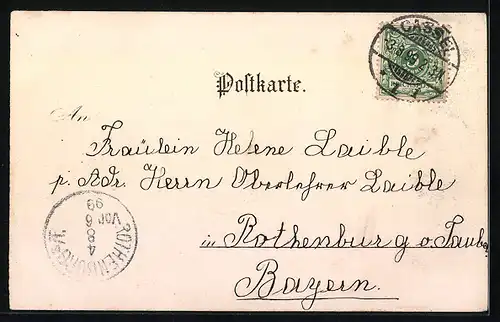 CASSEL
Postkarte.
An
Fräulein Helene Laible
p. Adr. Herrn Oberlehrer Laible
in Rothenburg o. Taub.
Bayern.
ROTHENBURG
4
8
Vor 6
99